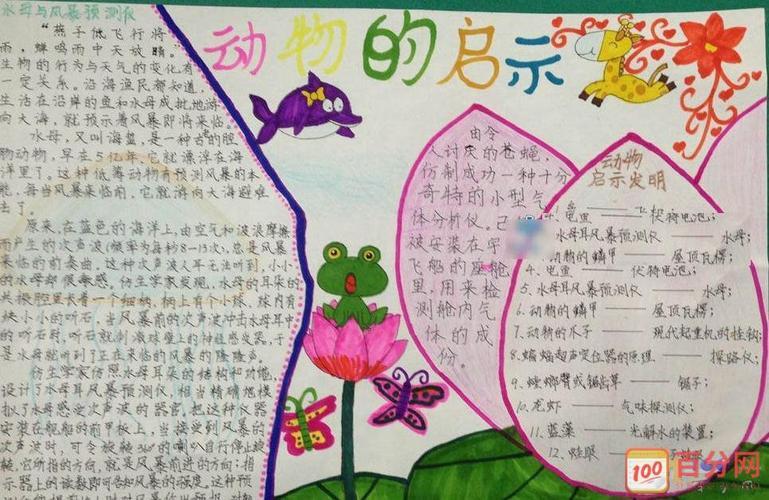 水母与风暴预测仪
“燕子低飞行将
雨，蝉鸣雨中天放晴。”
生物的行为与天气的变化有
一定关系。沿海渔民都知道，
生活在沿岸的鱼和水母成批地游
向大海，就预示着风暴即将来临。
水母，又叫海蜇，是一种古老的腔
肠动物，早在5亿年，它就漂浮在海
洋里了。这种低等动物有预测风暴的本
能，每当风暴来临前，它就游向大海避难
去了。
原来，在蓝色的海洋上，由空气和波浪摩擦
而产生的次声波（频率为每秒8-13次），总是风暴
来临的前奏曲。这种次声波人耳无法听到，小小
的水母却很敏感。仿生学家发现，水母的耳朵的
共振腔里长着一个细柄，柄上有个小球，球内有
块小小的听石，当风暴前的次声波冲击水母耳中
的听石时，听石就刺激球壁上的神经感受器，于
是水母就听到了正在来临的风暴的隆隆声。
仿生学家仿照水母耳朵的结构和功能，
设计了水母耳风暴预测仪，相当精确地模
拟了水母感受次声波的器官。把这种仪器
安装在舰船的前甲板上，当接受到风暴的
次声波时，可令旋转360°的喇叭自行停止旋
转，它所指的方向，就是风暴前进的方向；指
示器上的读数即可告知风暴的强度。这种预
动物的启示
由令
人讨厌的苍蝇，
仿制成功一种十分
奇特的小型气
体分析仪。已
被安装在宇
飞船的座舱
里，用来检
测舱内气
体的成
份。
动物
启示发明
电鱼——伏特电池；
水母耳风暴预测仪——水母；
动物的鳞甲——屋顶瓦楞；
4、电鱼——伏特电池；
5、水母耳风暴预测仪——水母；
6、动物的鳞甲——屋顶瓦楞；
7、动物的爪子——现代起重机的挂钩；
8、蝙蝠超声变位器的原理——探路仪；
9、螳螂臂或锯齿草——锯子；
10、龙虾——气味探测仪；
11、蓝藻——光解水的装置；
12、蛙眼
100 百分网